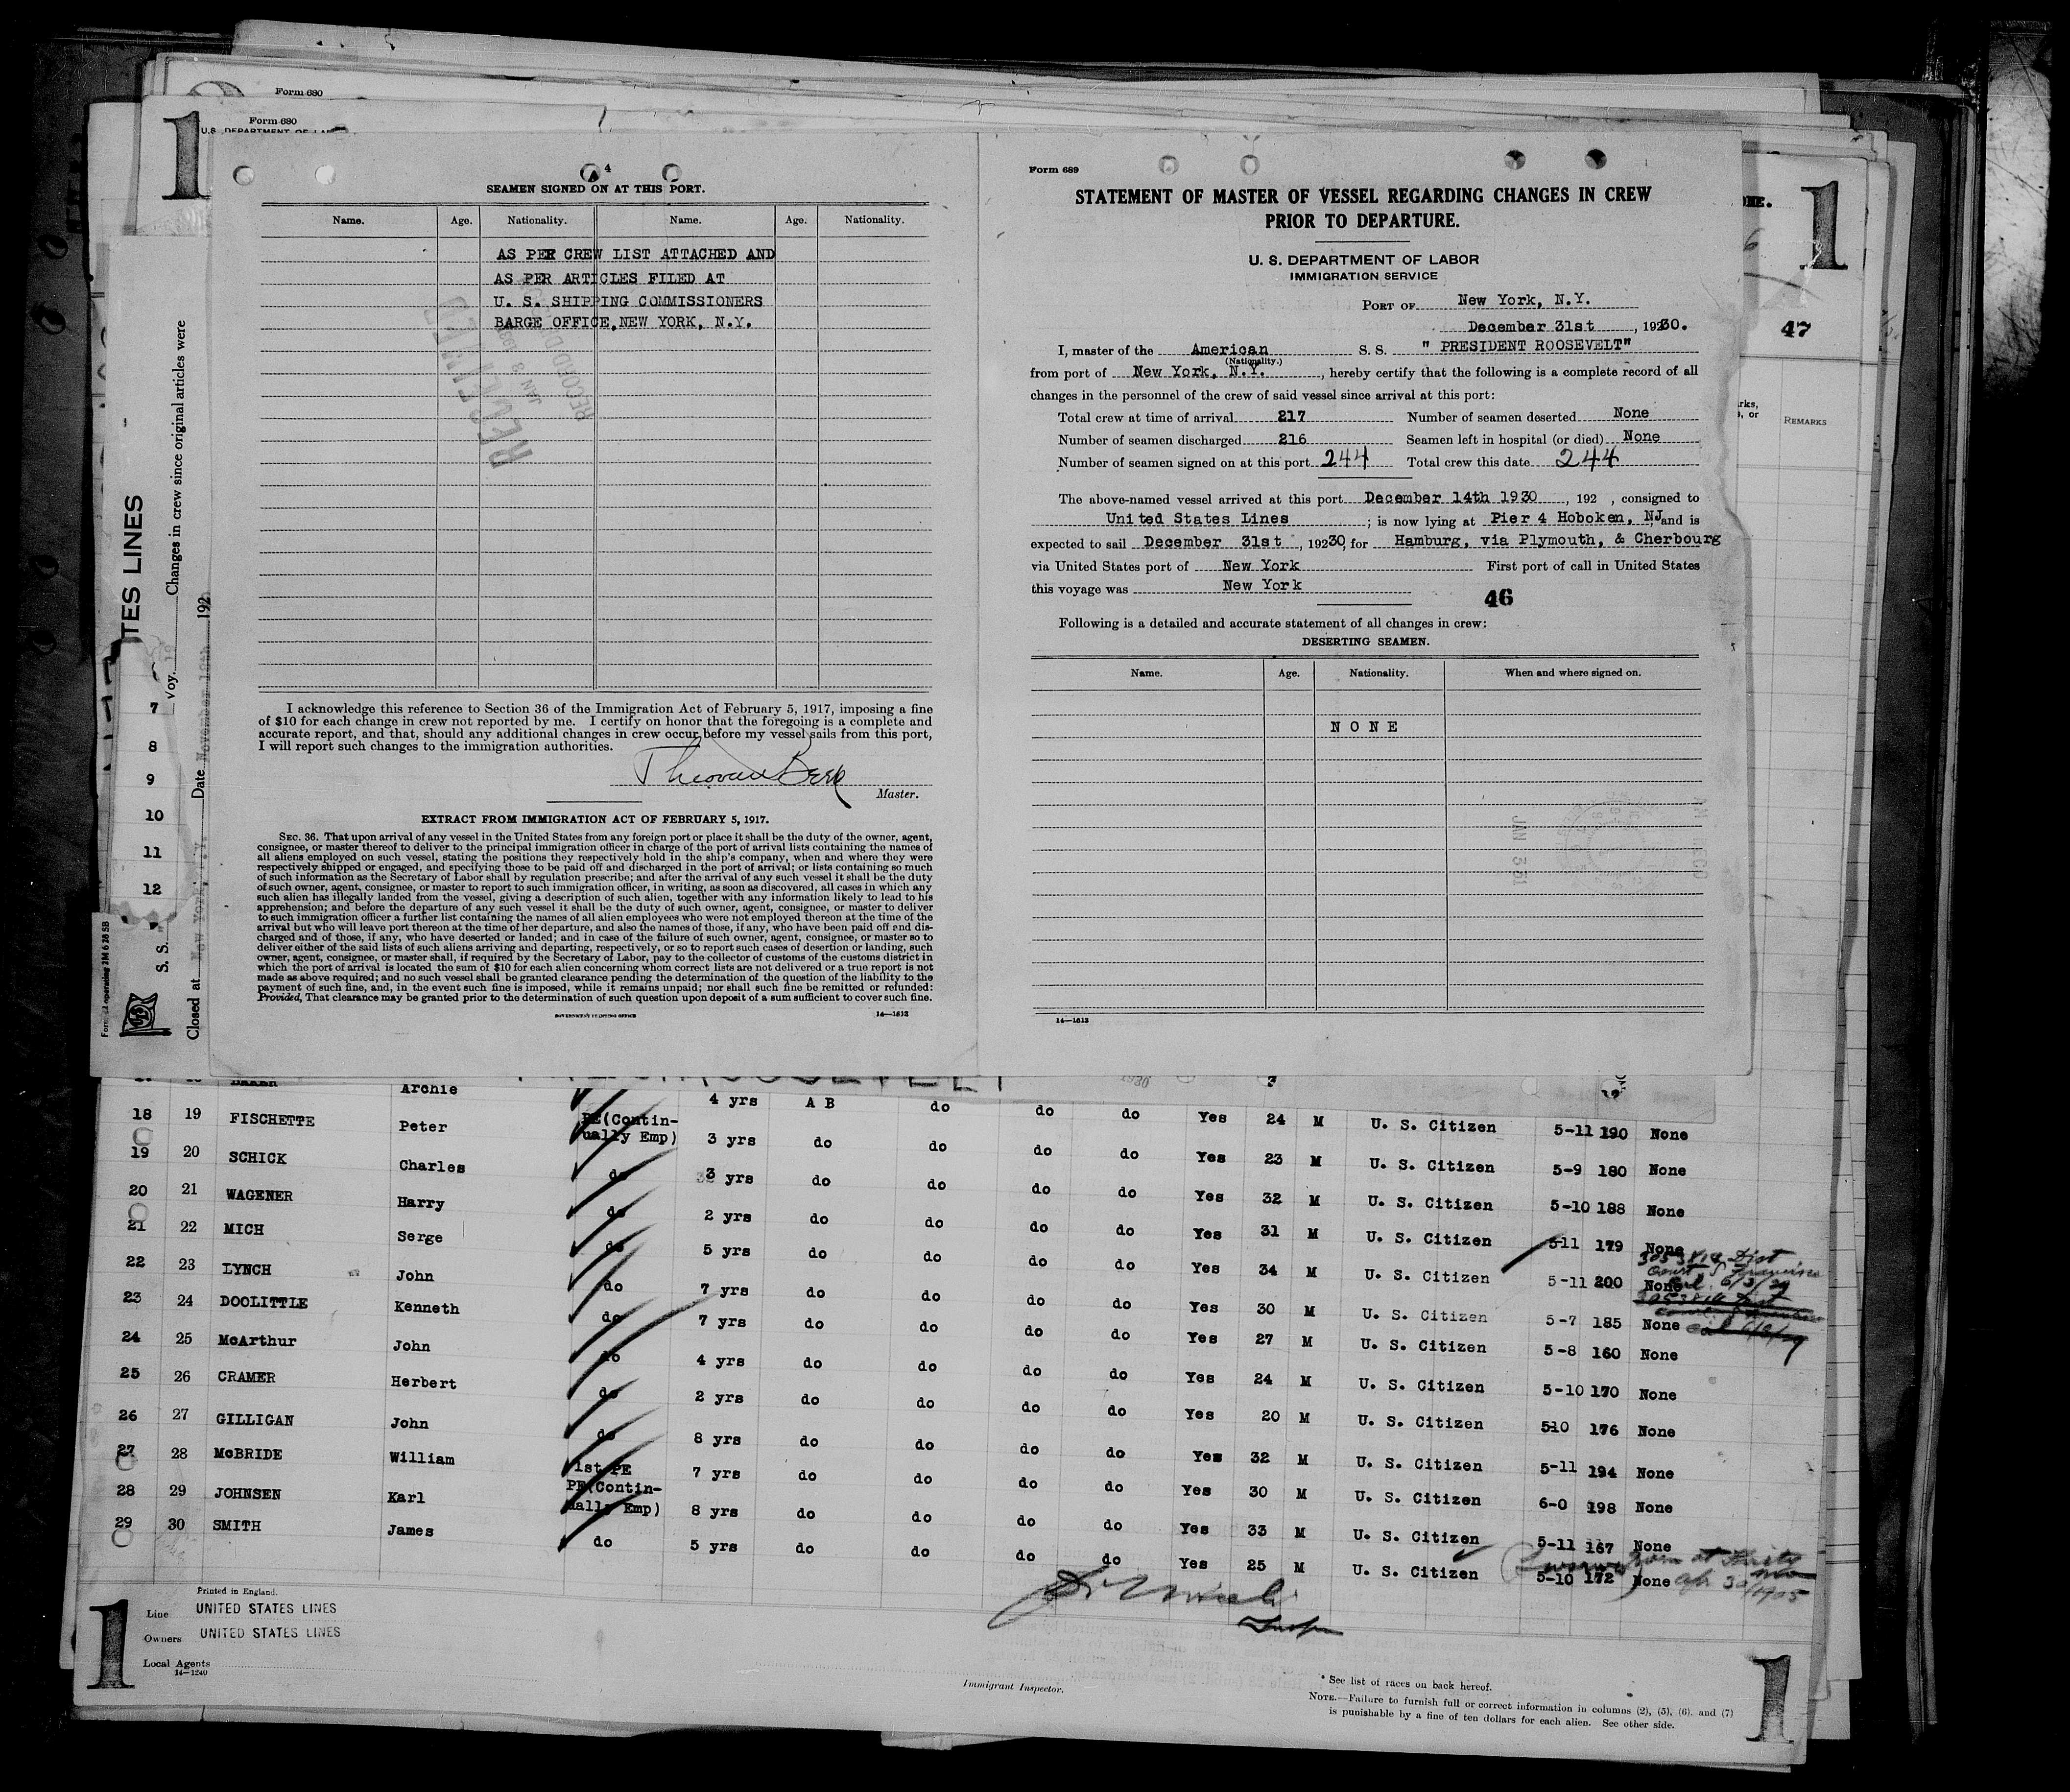 Form 680
Form 680
U.S. DEPARTMENT OF
1
1
ONE.
47
REMARKS
TES LINES
Changes in crew since original articles were
Voy.
192
Date November 18th
Closed at New York N.Y.
S. S.
7
8
9
10
11
12
4
SEAMEN SIGNED ON AT THIS PORT.
Name. Age. Nationality. Name. Age. Nationality.
AS PER CREW LIST ATTACHED AND
AS PER ARTICLES FILED AT
U. S. SHIPPING COMMISSIONERS
BARGE OFFICE,NEW YORK, N.Y.
RECEIVED
JAN 3
RECORD
I acknowledge this reference to Section 36 of the Immigration Act of February 5, 1917, imposing a fine
of $10 for each change in crew not reported by me. I certify on honor that the foregoing is a complete and
accurate report, and that, should any additional changes in crew occur before my vessel sails from this port,
I will report such changes to the immigration authorities.
Master.
EXTRACT FROM IMMIGRATION ACT OF FEBRUARY 5, 1917.
SEC. 36. That upon arrival of any vessel in the United States from any foreign port or place it shall be the duty of the owner, agent,
consignee, or master thereof to deliver to the principal immigration officer in charge of the port of arrival lists containing the names of
all aliens employed on such vessel, stating the positions they respectively hold in the ship's company, when and where they were
respectively shipped or engaged, and specifying those to be paid off and discharged in the port of arrival; or lists containing so much
of such information as the Secretary of Labor shall by regulation prescribe; and after the arrival of any such vessel it shall be the duty
of such owner, agent, consignee, or master to report to such immigration officer, in writing, as soon as discovered, all cases in which any
such alien has illegally landed from the vessel, giving a description of such alien, together with any information likely to lead to his
apprehension; and before the departure of any such vessel it shall be the duty of such owner, agent, consignee, or master to deliver
to such immigration officer a further list containing the names of all alien employees who were not employed thereon at the time of the
arrival but who will leave port thereon at the time of her departure, and also the names of those, if any, who have been paid off and dis-
charged and of those, if any, who have deserted or landed; and in case of the failure of such owner, agent, consignee, or master so to
deliver either of the said lists of such aliens arriving and departing, respectively, or so to report such cases of desertion or landing, such
owner, agent, consignee, or master shall, if required by the Secretary of Labor, pay to the collector of customs of the customs district in
which the port of arrival is located the sum of $10 for each alien concerning whom correct lists are not delivered or a true report is not
made as above required; and no such vessel shall be granted clearance pending the determination of the question of the liability to the
payment of such fine, and, in the event such fine is imposed, while it remains unpaid; nor shall such fine be remitted or refunded:
Provided, That clearance may be granted prior to the determination of such question upon deposit of a sum sufficient to cover such fine.
GOVERNMENT PRINTING OFFICE 14—1513
Form 689
STATEMENT OF MASTER OF VESSEL REGARDING CHANGES IN CREW
PRIOR TO DEPARTURE.
U. S. DEPARTMENT OF LABOR
IMMIGRATION SERVICE
PORT OF New York, N.Y.
December 31st , 19230.
I, master of the American S. S. " PRESIDENT ROOSEVELT"
(Nationality.)
from port of New York, N.Y. , hereby certify that the following is a complete record of all
changes in the personnel of the crew of said vessel since arrival at this port:
Total crew at time of arrival 217 Number of seamen deserted None
Number of seamen discharged 216 Seamen left in hospital (or died) None
Number of seamen signed on at this port 244 Total crew this date 244
The above-named vessel arrived at this port December 14th 1930 , 192 , consigned to
United States Lines ; is now lying at Pier 4 Hoboken, NJ and is
expected to sail December 31st , 19230, for Hamburg, via Plymouth, & Cherbourg
via United States port of New York First port of call in United States
this voyage was New York
46
Following is a detailed and accurate statement of all changes in crew:
DESERTING SEAMEN.
Name. Age. Nationality. When and where signed on.
N O N E
JAN 3 31
14—1513
18 BAKER Archie 4 yrs A B do do do Yes 24 M U. S. Citizen 5-11 190 None
18 19 FISCHETTE Peter PE(Contin-ually Emp) 3 yrs do do do do Yes 23 M U. S. Citizen 5-9 180 None
19 20 SCHICK Charles do 3 yrs do do do do Yes 32 M U. S. Citizen 5-10 188 None
20 21 WAGENER Harry do 2 yrs do do do do Yes 31 M U. S. Citizen 5-11 179 None
21 22 MICH Serge do 5 yrs do do do do Yes 34 M U. S. Citizen 5-11 200 None
22 23 LYNCH John do 7 yrs do do do do Yes 30 M U. S. Citizen 5-7 185 None
23 24 DOOLITTLE Kenneth do 7 yrs do do do do Yes 27 M U. S. Citizen 5-8 160 None
24 25 McArthur John do 4 yrs do do do do Yes 24 M U. S. Citizen 5-10 170 None
25 26 CRAMER Herbert do 2 yrs do do do do Yes 20 M U. S. Citizen 510 176 None
26 27 GILLIGAN John do 8 yrs do do do do Yes 32 M U. S. Citizen 5-11 194 None
27 28 McBRIDE William 1st PE 7 yrs do do do do Yes 30 M U. S. Citizen 6-0 198 None
28 29 JOHNSEN Karl PE(Contin-ually Emp) 8 yrs do do do do Yes 33 M U. S. Citizen 5-11 167 None
29 30 SMITH James do 5 yrs do do do do Yes 25 M U. S. Citizen 5-10 172 None
Printed in England.
Line UNITED STATES LINES
Owners UNITED STATES LINES
Local Agents
14—1240
Immigrant Inspector.
* See list of races on back hereof.
NOTE.—Failure to furnish full or correct information in columns (2), (5), (6), and (7)
is punishable by a fine of ten dollars for each alien. See other side.
1
1